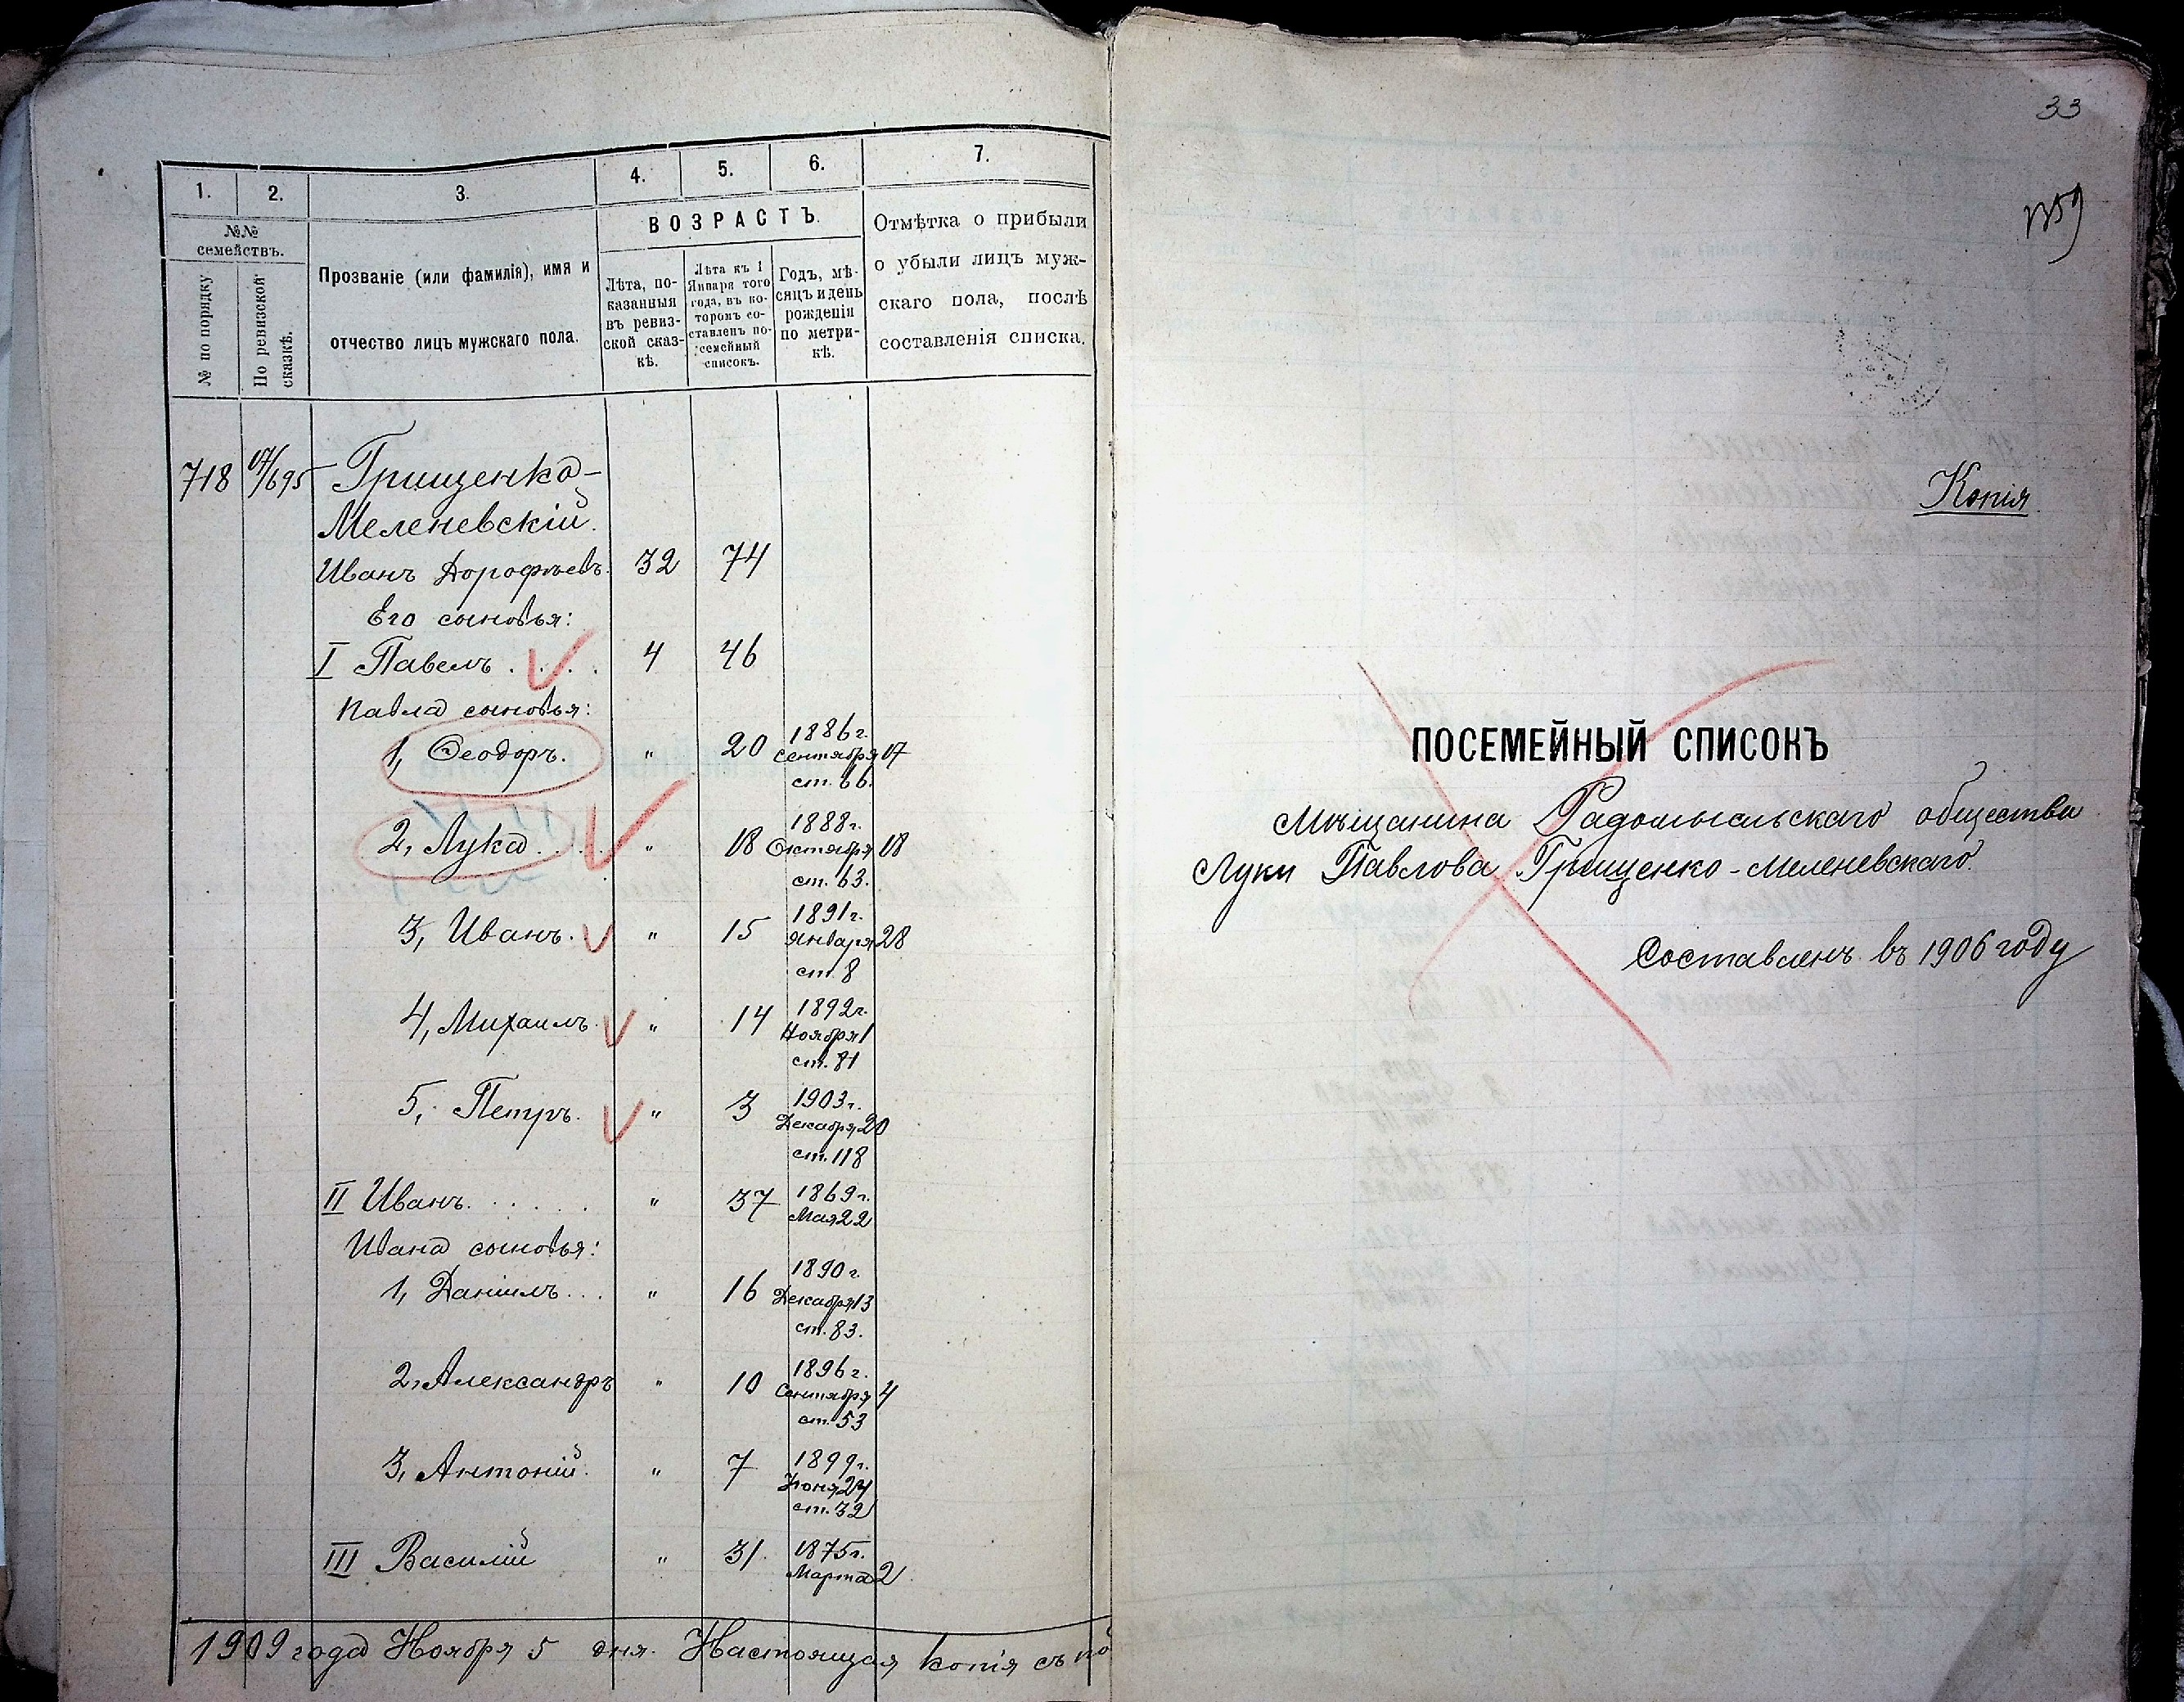 1.
2.
3.
4.
5.
6.
7.
№№ семействъ.
№ по порядку
По ревизской сказкѣ.
Прозваніе (или фамилія), имя и
отчество лицъ мужскаго пола.
ВОЗРАСТЪ.
Лѣта, по-
казанныя
въ ревиз-
ской сказ-
кѣ.
Лѣта къ 1
Января того
года, въ ко-
торомъ со-
ставленъ по-
семейный
списокъ.
Годъ, мѣ-
сяцъ и день
рожденія
по метри-
кѣ.
Отмѣтка о прибыли
о убыли лицъ муж-
скаго пола, послѣ
составленія списка.
718 17/695 Грищенко-
Меленевскій.
Иванъ Дорофѣевъ. 32 74
Его сыновья:
I Павелъ . . . . 4 46
Павла сыновья:
1, Ѳеодоръ. " 20 1886 г.
Сентября 17
ст. 66.
2, Лука . . . " 18 1888 г.
Октября 18
ст. 63.
3, Иванъ. " 15 1891 г.
Января 28
ст. 8
4, Михаилъ. " 14 1892 г.
Ноября 1
ст. 81
5, Петръ. " 3 1903 г.
Декабря 20
ст. 118
II Иванъ. . . . . . " 37 1869 г.
Мая 22
Ивана сыновья:
1, Даніилъ. . . " 16 1890 г.
Декабря 13
ст. 83.
2, Александръ " 10 1896 г.
Сентября 4
ст. 53
3, Антоній. " 7 1899 г.
Іюня 24
ст. 32
III Василій " 31. 1875 г.
Марта 2
1909 года Ноября 5 дня. Настоящая копія съ по
33
Копія
ПОСЕМЕЙНЫЙ СПИСОКЪ
Мѣщанина Радомысльскаго общества
Луки Павлова Грищенко-Меленевскаго.
Составленъ въ 1906 году